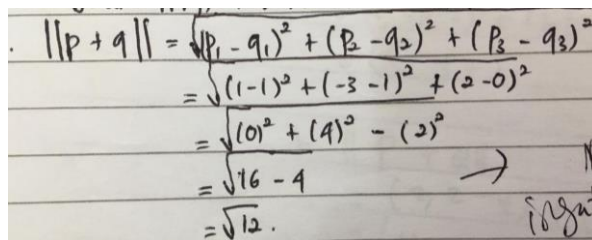 . ||p + q|| = √(p₁ - q₁)² + (p₂ - q₂)² + (p₃ - q₃)²
= √(1-1)² + (-3-1)² + (2-0)²
= √(0)² + (4)² - (2)²
= √16 - 4 →
= √12.